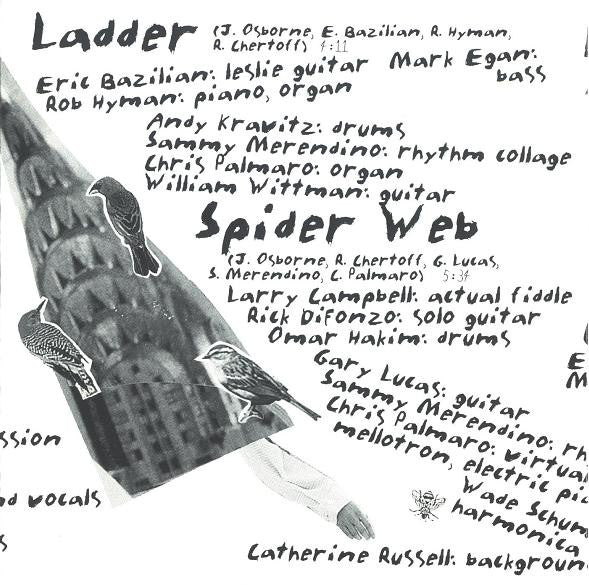 Ladder (J. Osborne, E. Bazilian, R. Hyman,
R. Chertoff) 4:11
Mark Egan:
bass
Eric Bazilian: leslie guitar
Rob Hyman: piano, organ
Andy Kravitz: drums
Sammy Merendino: rhythm collage
Chris Palmaro: organ
William Wittman: guitar
Spider Web
(J. Osborne, R. Chertoff, G. Lucas,
S. Merendino, C. Palmaro) 5:34
Larry Campbell: actual fiddle
Rick DiFonzo: solo guitar
Omar Hakim: drums
Gary Lucas: guitar
Sammy Merendino: rh
Chris Palmaro: virtual
mellotron, electric pia
Wade Schum
harmonica
Catherine Russell: backgroun
ssion
nd vocals
s
E
M